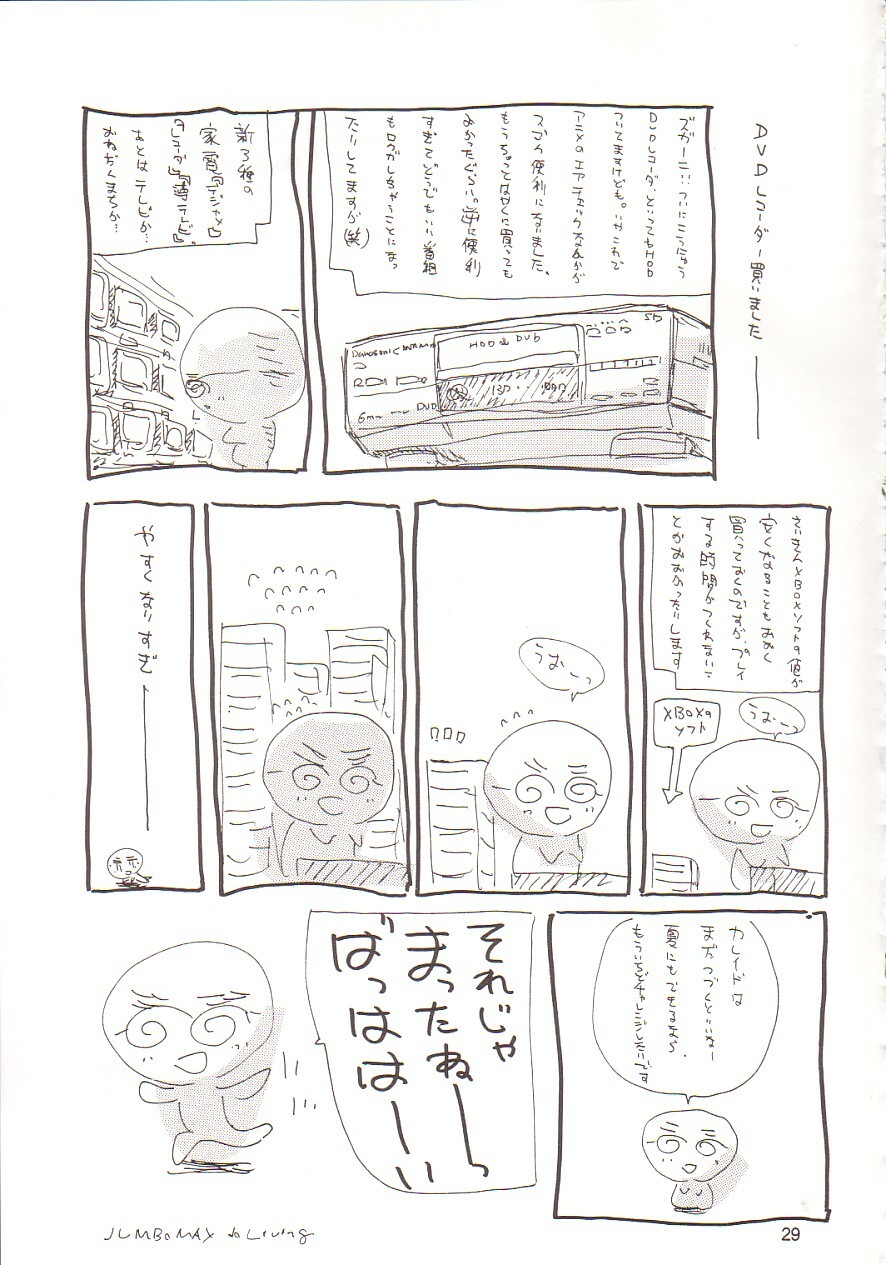 DVDレコーダー買いました
ズガーン…ついにこうにゅう
DVDレコーダ、といってもHDD
ついてますけども。いやこれで
アニメのエアチェックなんかが
スゴク便利になりました。
もうちょっとはやくに買っても
よかったぐらい。逆に便利
すぎてどうでもいい番組
もロクガしちゃうことになっ
たりしてますが(笑)
HDD & DVD
SD
DVD
新3種の
家電「デジカメ」
「レコーダ」「薄テレビ」、
あとはテレビか…
おねだんまちか…
さいきんXBOXソフトの値が
安くなることもおおく
買っておくのですが、プレイ
する時間がつくれないこ
とがおおかったりします
うおーっ
XBOXの
ソフト
うおーっ
やすくなりすぎ
カレイドは
まだつづくといいねー
夏にもできるなら、
もういちどチャレンジしたいです
それじゃ
まったねーっ
ばっはは
ーい
JUMBOMAX do Living
29